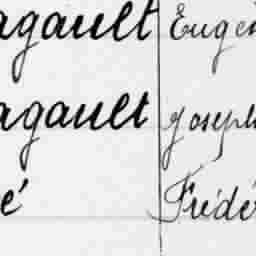 agault Eugè
agault Joseph
é Frédé